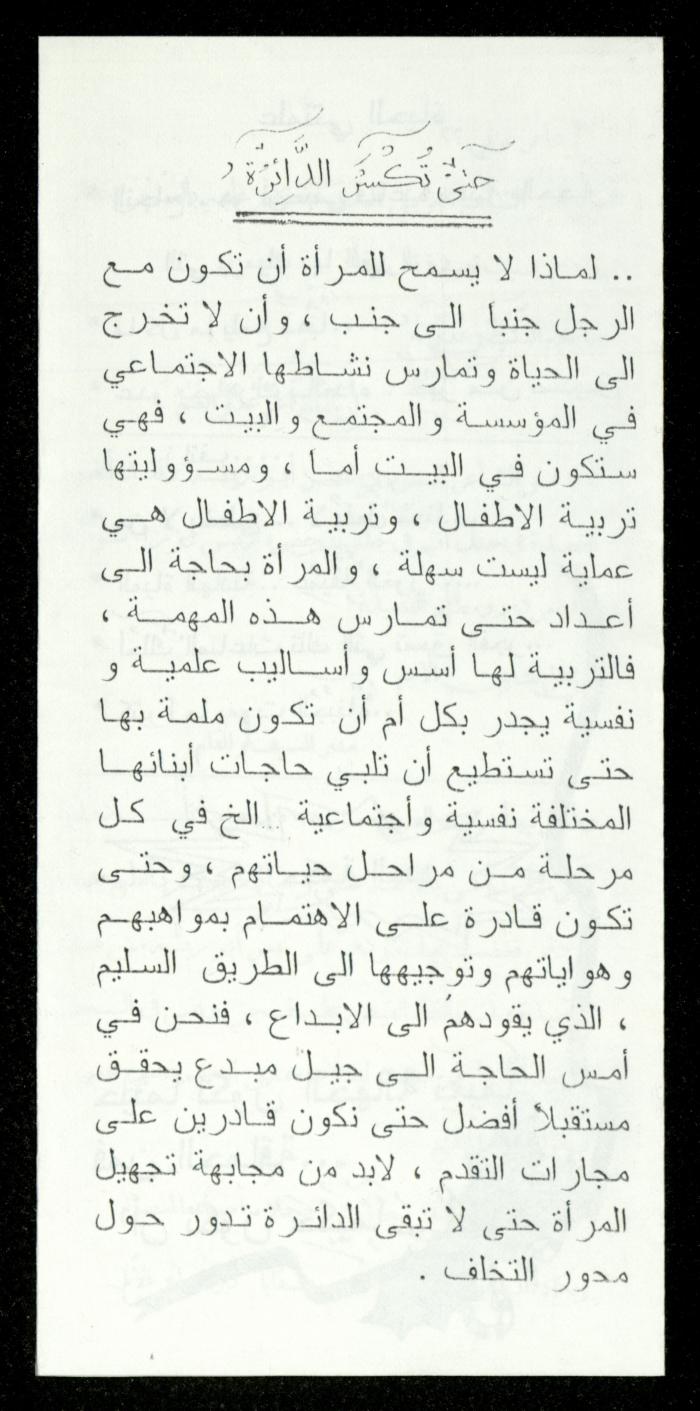 حتىٰ تُكْسَرَ الدَّائِرَة
.. لماذا لا يسمح للمرأة أن تكون مع
الرجل جنباً الى جنب ، وأن لا تخرج
الى الحياة وتمارس نشاطها الاجتماعي
في المؤسسة والمجتمع والبيت ، فهي
ستكون في البيت أما ، ومسؤوليتها
تربية الاطفال ، وتربية الاطفال هي
عملية ليست سهلة ، والمرأة بحاجة الى
أعداد حتى تمارس هذه المهمة ،
فالتربية لها أسس وأساليب علمية و
نفسية يجدر بكل أم أن تكون ملمة بها
حتى تستطيع أن تلبي حاجات أبنائها
المختلفة نفسية وأجتماعية ..الخ في كل
مرحلة من مراحل حياتهم ، وحتى
تكون قادرة على الاهتمام بمواهبهم
وهواياتهم وتوجيهها الى الطريق السليم
، الذي يقودهم الى الابداع ، فنحن في
أمس الحاجة الى جيل مبدع يحقق
مستقبلاً أفضل حتى نكون قادرين على
مجارات التقدم ، لابد من مجابهة تجهيل
المرأة حتى لا تبقى الدائرة تدور حول
محور التخلف .